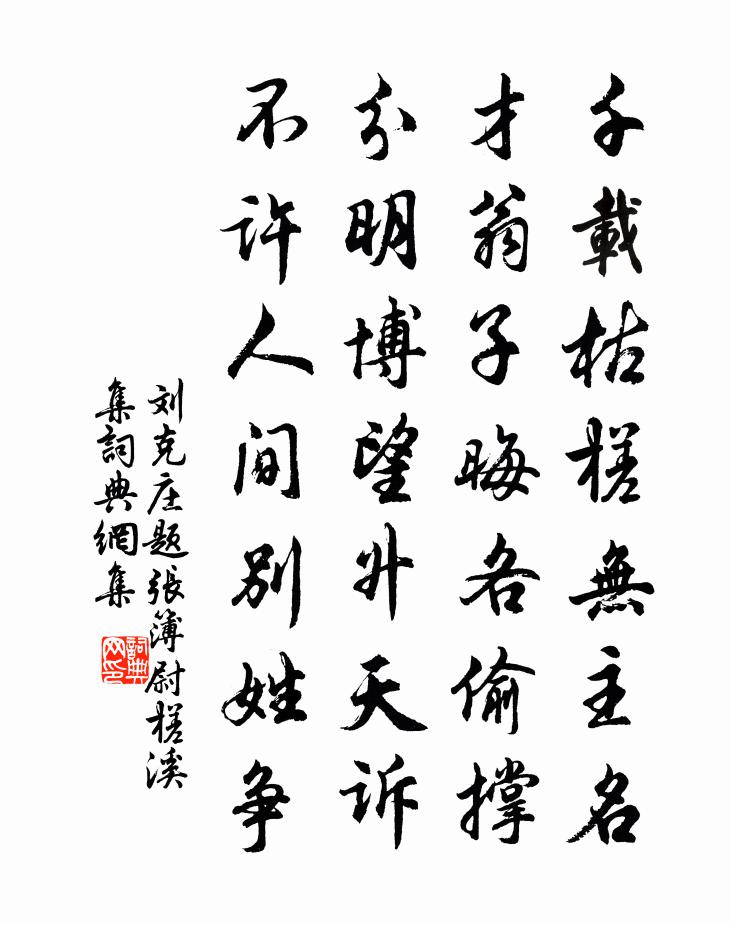 千載枯槎無主名
才翁子晦各偷撐
分明博望升天诉
不許人间别姓争
刘克庄题張簿尉槎溪
集詞典網集
詞典网印